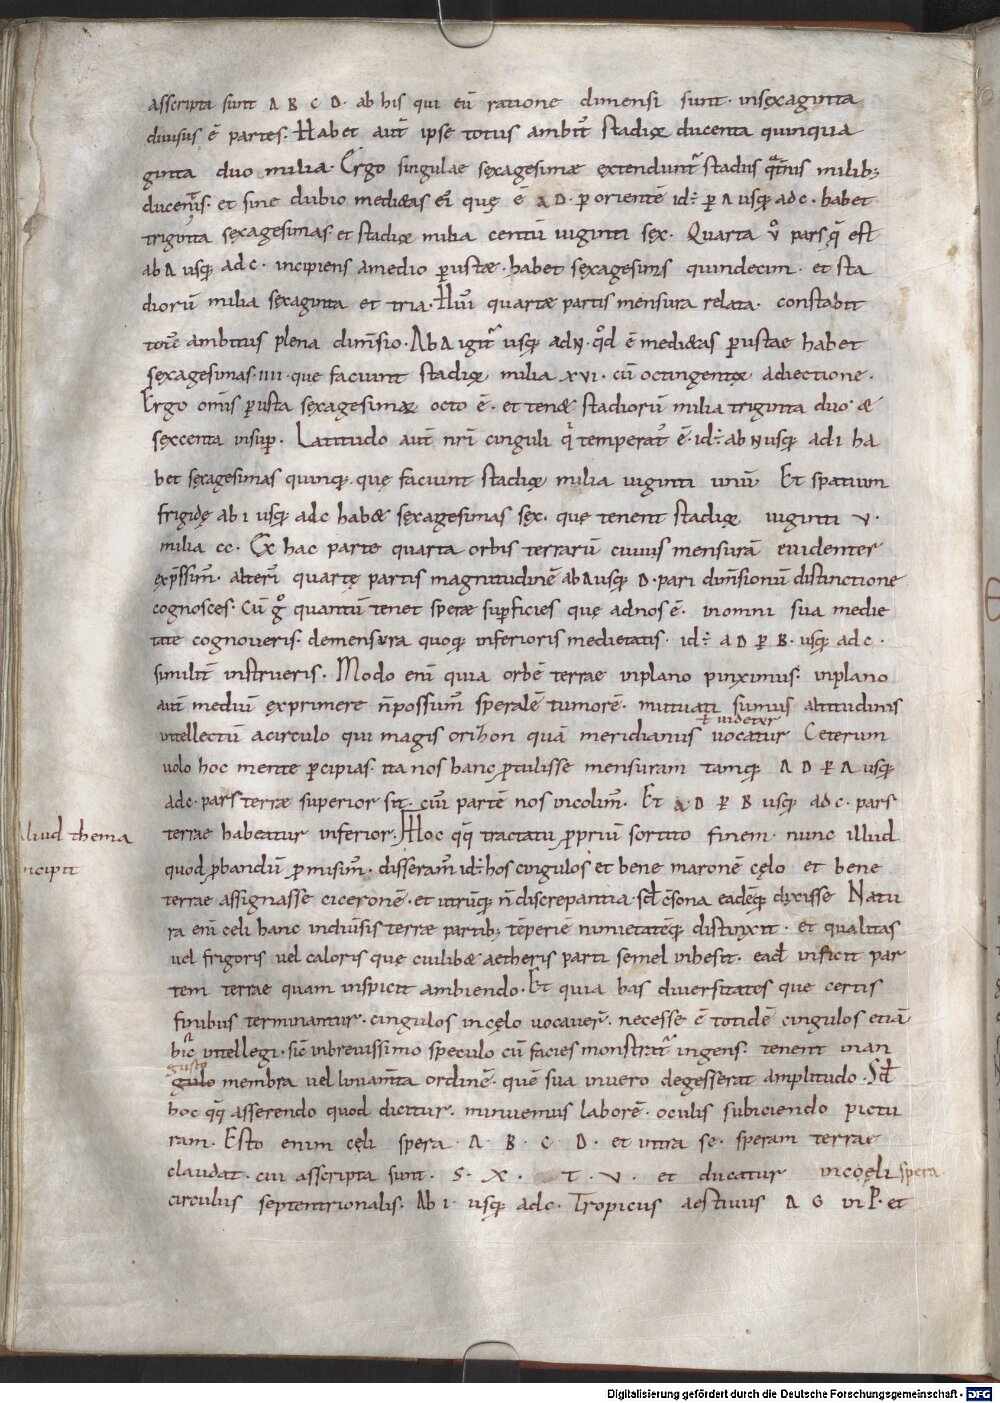 asscripta sunt A B C D. ab his qui eū ratione dimensi sunt. insexaginta
diuisus ē partes. Habet aut̄ ipse totus ambit᷒ stadiǫ ducenta quinqua
ginta duo milia. Ergo singulae sexagesimæ extendunt᷒ stadiis qͣt̄nis milib;
ducenͭis. et sine dubio medi&as ei᷒ quę ē A D. ꝑ orientē id÷ ꝑ A usq; adc. habet
triginta sexagesimas et stadiǫ milia centū uiginti sex. Quarta v̊ pars q̄ est
ab A usq; ad c. incipiens amedio ꝑustæ. habet sexagesimas quindecim. et sta
diorū milia sexaginta et tria. Hui᷒ quartæ partis mensura relata. constabit
toti᷒ ambitus plena dim̄sio. Ab A igit᷒ usq; adN. qd̊ ē medi&as ꝑustae habet
sexagesimas. IIII. que faciunt stadiǫ milia XVI. cū octingentǫ adiectione.
Ergo om̄is ꝑusta sexagesimæ octo ē. et ten& stadiorū milia triginta duo. &
sexcenta insuꝑ. Latitudo aut̄ nr̄i cinguli q̇ temperat᷒ ē. id÷ ab N usq; ad I ha
bet sęxagesimas quinq;. quę faciunt stadiǫ milia uiginti unū. Et spatium
frigidę ab I usq; adc hab& sęxagesimas sęx. quę tenent stadiǫ uiginti v.
milia cc. Ex hac parte quarta orbis terrarū cuiuus mensurā euidenter
exp̄ssim᷒. alteri᷒ quartę partis magnitudinē ab A usq; D. pari dim̄sionū distinctione
cognosces. Cū g̊ quantū tenet speræ suꝑficies quę adnos ē. inomni sua medie
tate cognoueris. demensura quoq; inferioris medietatis. id÷ A D ꝑ B. usq; ad c.
similit̄ instrueris. Modo enī quia orbē terrae inplano pinximus. inplano
aut̄ mediū exprimere n̄possum᷒ speralē tumorē. mutuati sumus altitudinis
ƚ uidetur
intellectū acirculo qui magis orihon quā meridianus uocatur Ceterum
uolo hoc mente ꝑcipias. ita nos hanc ꝓtulisse mensuram tamq; A D ꝑ A usq;
adc. pars terræ superior sit. cui᷒ partē nos incolim᷒. Et A D ꝑ B usq; ad c. pars
terrae habeatur inferior. Hoc qq̄ tractatu ꝓpriū sortito finem. nunc illud
Aliud thema
incipit
quod ꝓbandū ꝓmisim᷒. disseram᷒ id÷ hos cingulos et bene maronē cęlo et bene
terrae assignasse ciceronē. et utrūq; n̄ discrepantia. sed c̄sona eadēq; dixisse Natu
ra enī cęli hanc indiuersis terræ partib; tēperiē nimietatēq; distinxit. et qualitas
uel frigoris uel caloris quę cuilib& aetheris parti semel inhesit. eadē inficit par
tem terrae quam inspicit ambiendo. Et quia has diuersitates que certis
finibus terminantur. cingulos incęlo uocauer̄. necesse ē totidē cingulos etiā
hic intellegi. sic̄ inbreuissimo speculo cū facies monstrat᷒ ingens. tenent inan
gusto
gulo membra uel liniam̄ta ordinē. quē sua inuero degesserat amplitudo. Sed
hoc qq̄ asserendo quod dicitur. minuemus laborē. oculis subiciendo pictu
ram. Esto enim cęli spera. A. B. C. D. et intra se. speram terrae
claudat. cui asscripta sunt. S. X. T. V. et ducatur incoęli spera
circulus septentrionalis. Ab I. usq; adc. Tropicus aestiuus A G in P. et
Digitalisierung gefördert durch die Deutsche Forschungsgemeinschaft - DFG